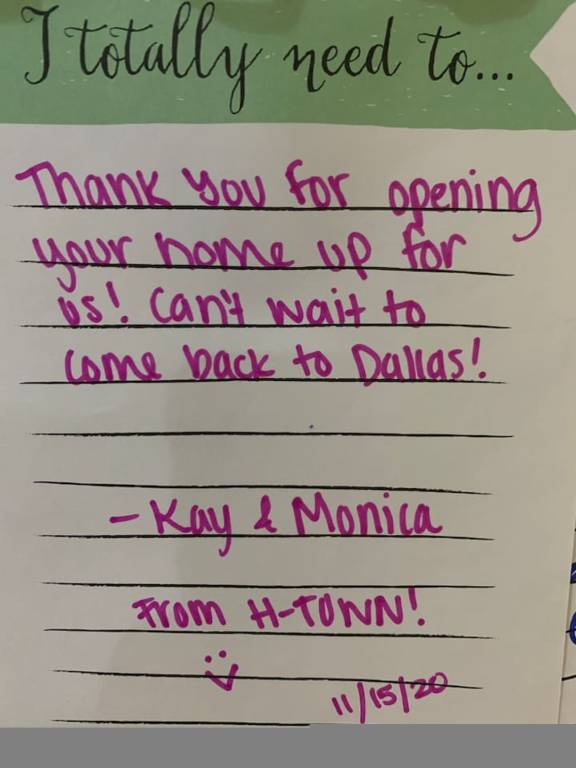 I totally need to...
Thank you for opening
your home up for
us! Can't wait to
come back to Dallas!
- Kay & Monica
From H-TOWN!
11/15/20